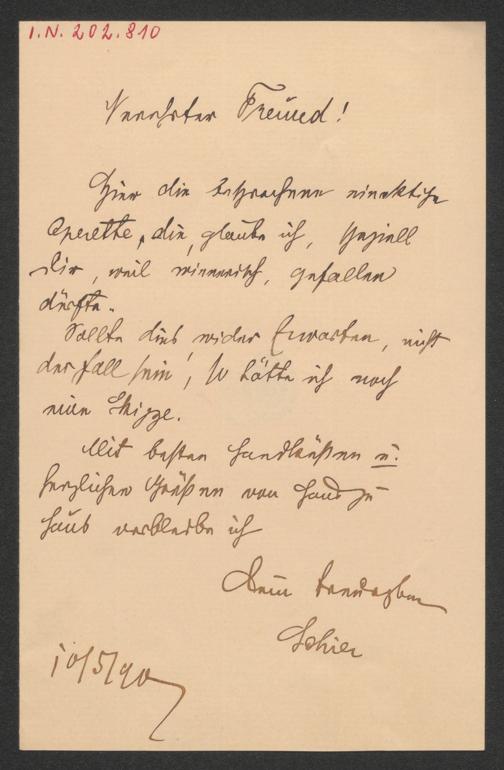 I.N. 202.810
Verehrter Freund!
Hier die besprochene einaktige
Operette, die, glaube ich, speziell
Dir, weil wienerisch, gefallen
dürfte.
Sollte dies wider Erwarten, nicht
der Fall sein, so hätte ich noch
eine Skizze.
Mit besten Handküssen u.
herzlichen Grüßen von Haus zu
Haus verbleibe ich
Dein
Schier
10/5/90